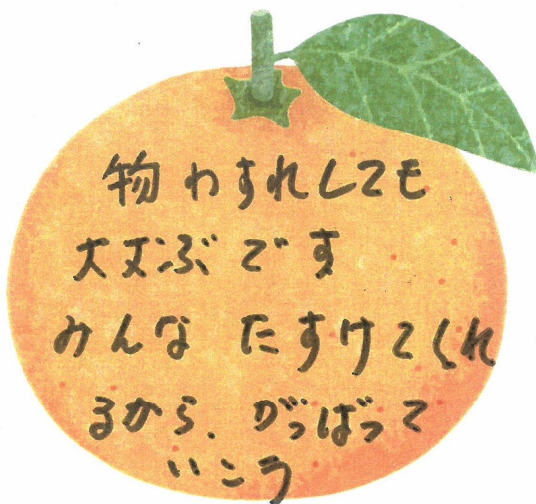 物わすれしても
大丈ぶです
みんな たすけてくれ
るから. がっばって
いこう